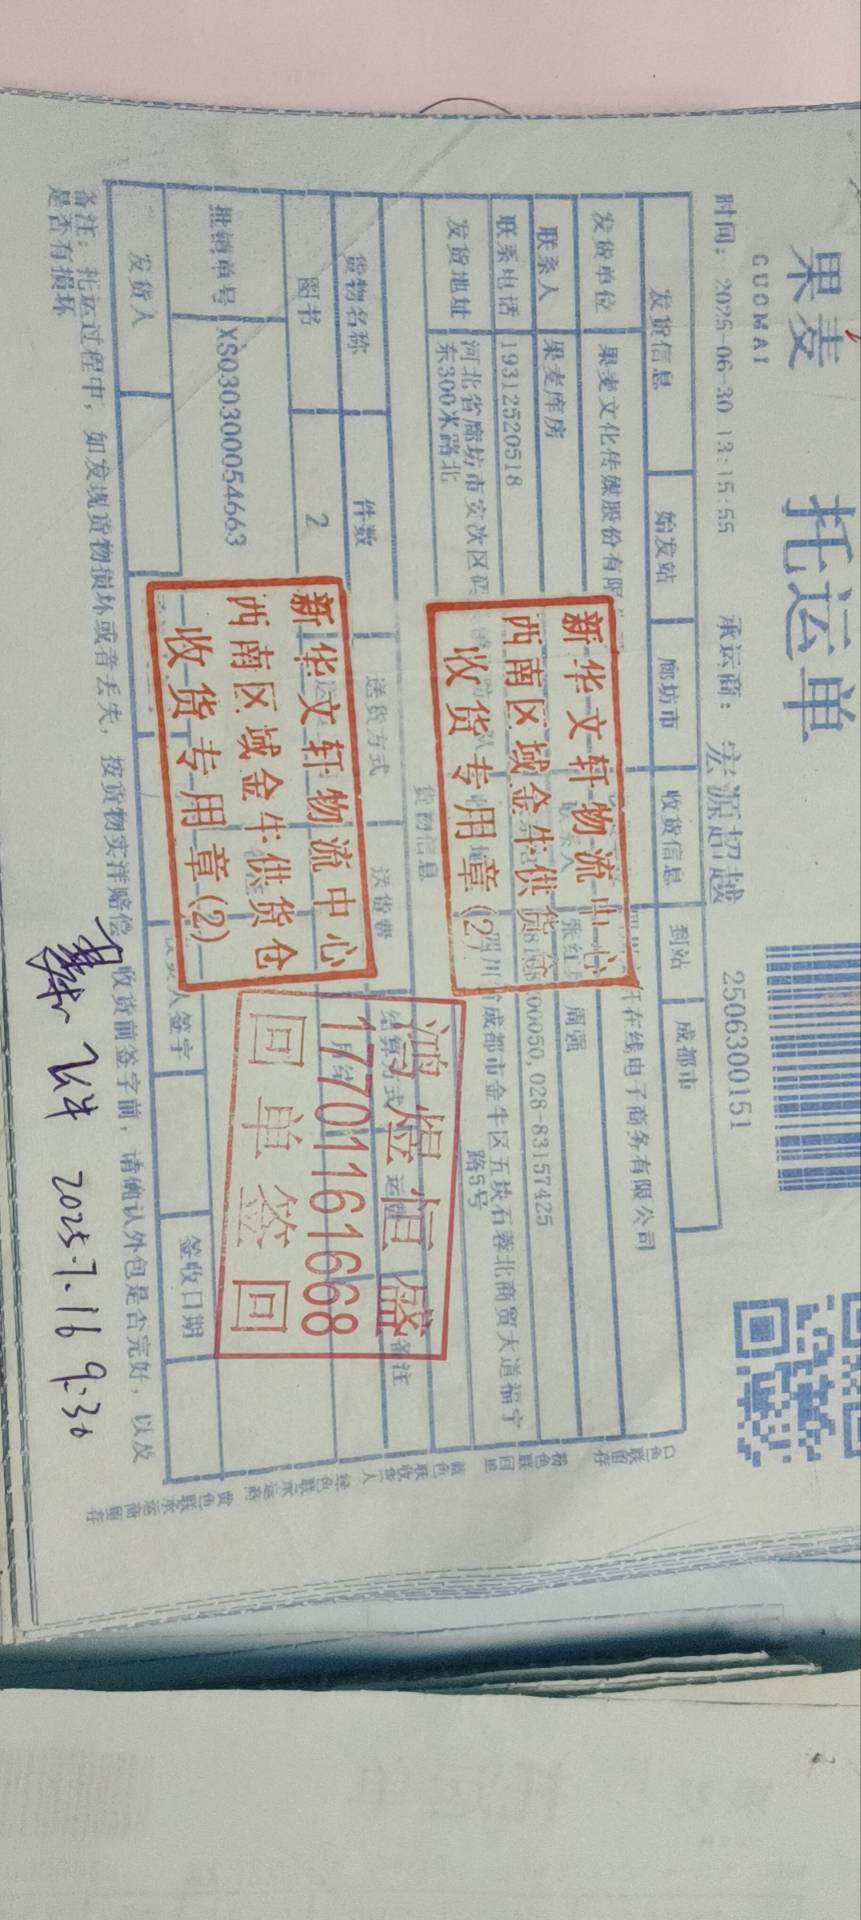 果麦
GUOMAI
托运单
时间: 2025-06-30 13:15:55
承运商: 宏源超越
2506300151
发货信息 始发站 廊坊市 收货信息 到站 成都市
发货单位 果麦文化传媒股份有限
在线电子商务有限公司
联系人 果麦库房
周强
联系电话 19312520518
00050,028-83157425
发货地址 河北省廊坊市安次区码
东300米路北
成都市金牛区五块石蓉北商贸大道福宁
路5号
货物信息
货物名称 件数 送货方式 送货费 结算方式 运费 备注
图书 2 月结
批销单号 XS030300054663
发货人
人签字
签收日期
备注: 托运过程中, 如发现货物损坏或者丢失, 按货物实洋赔偿, 收货前签字前, 请确认外包是否完好, 以及
是否有损坏
白色联留存 粉色联回单 蓝色联收货人 绿色联承运商 黄色联承运商留存
新华文轩物流中心
西南区域金牛供货仓
收货专用章(2)
新华文轩物流中心
西南区域金牛供货仓
收货专用章(2)
鸿煜恒盛
17701161668
回单签回
2025.7.16 9:30